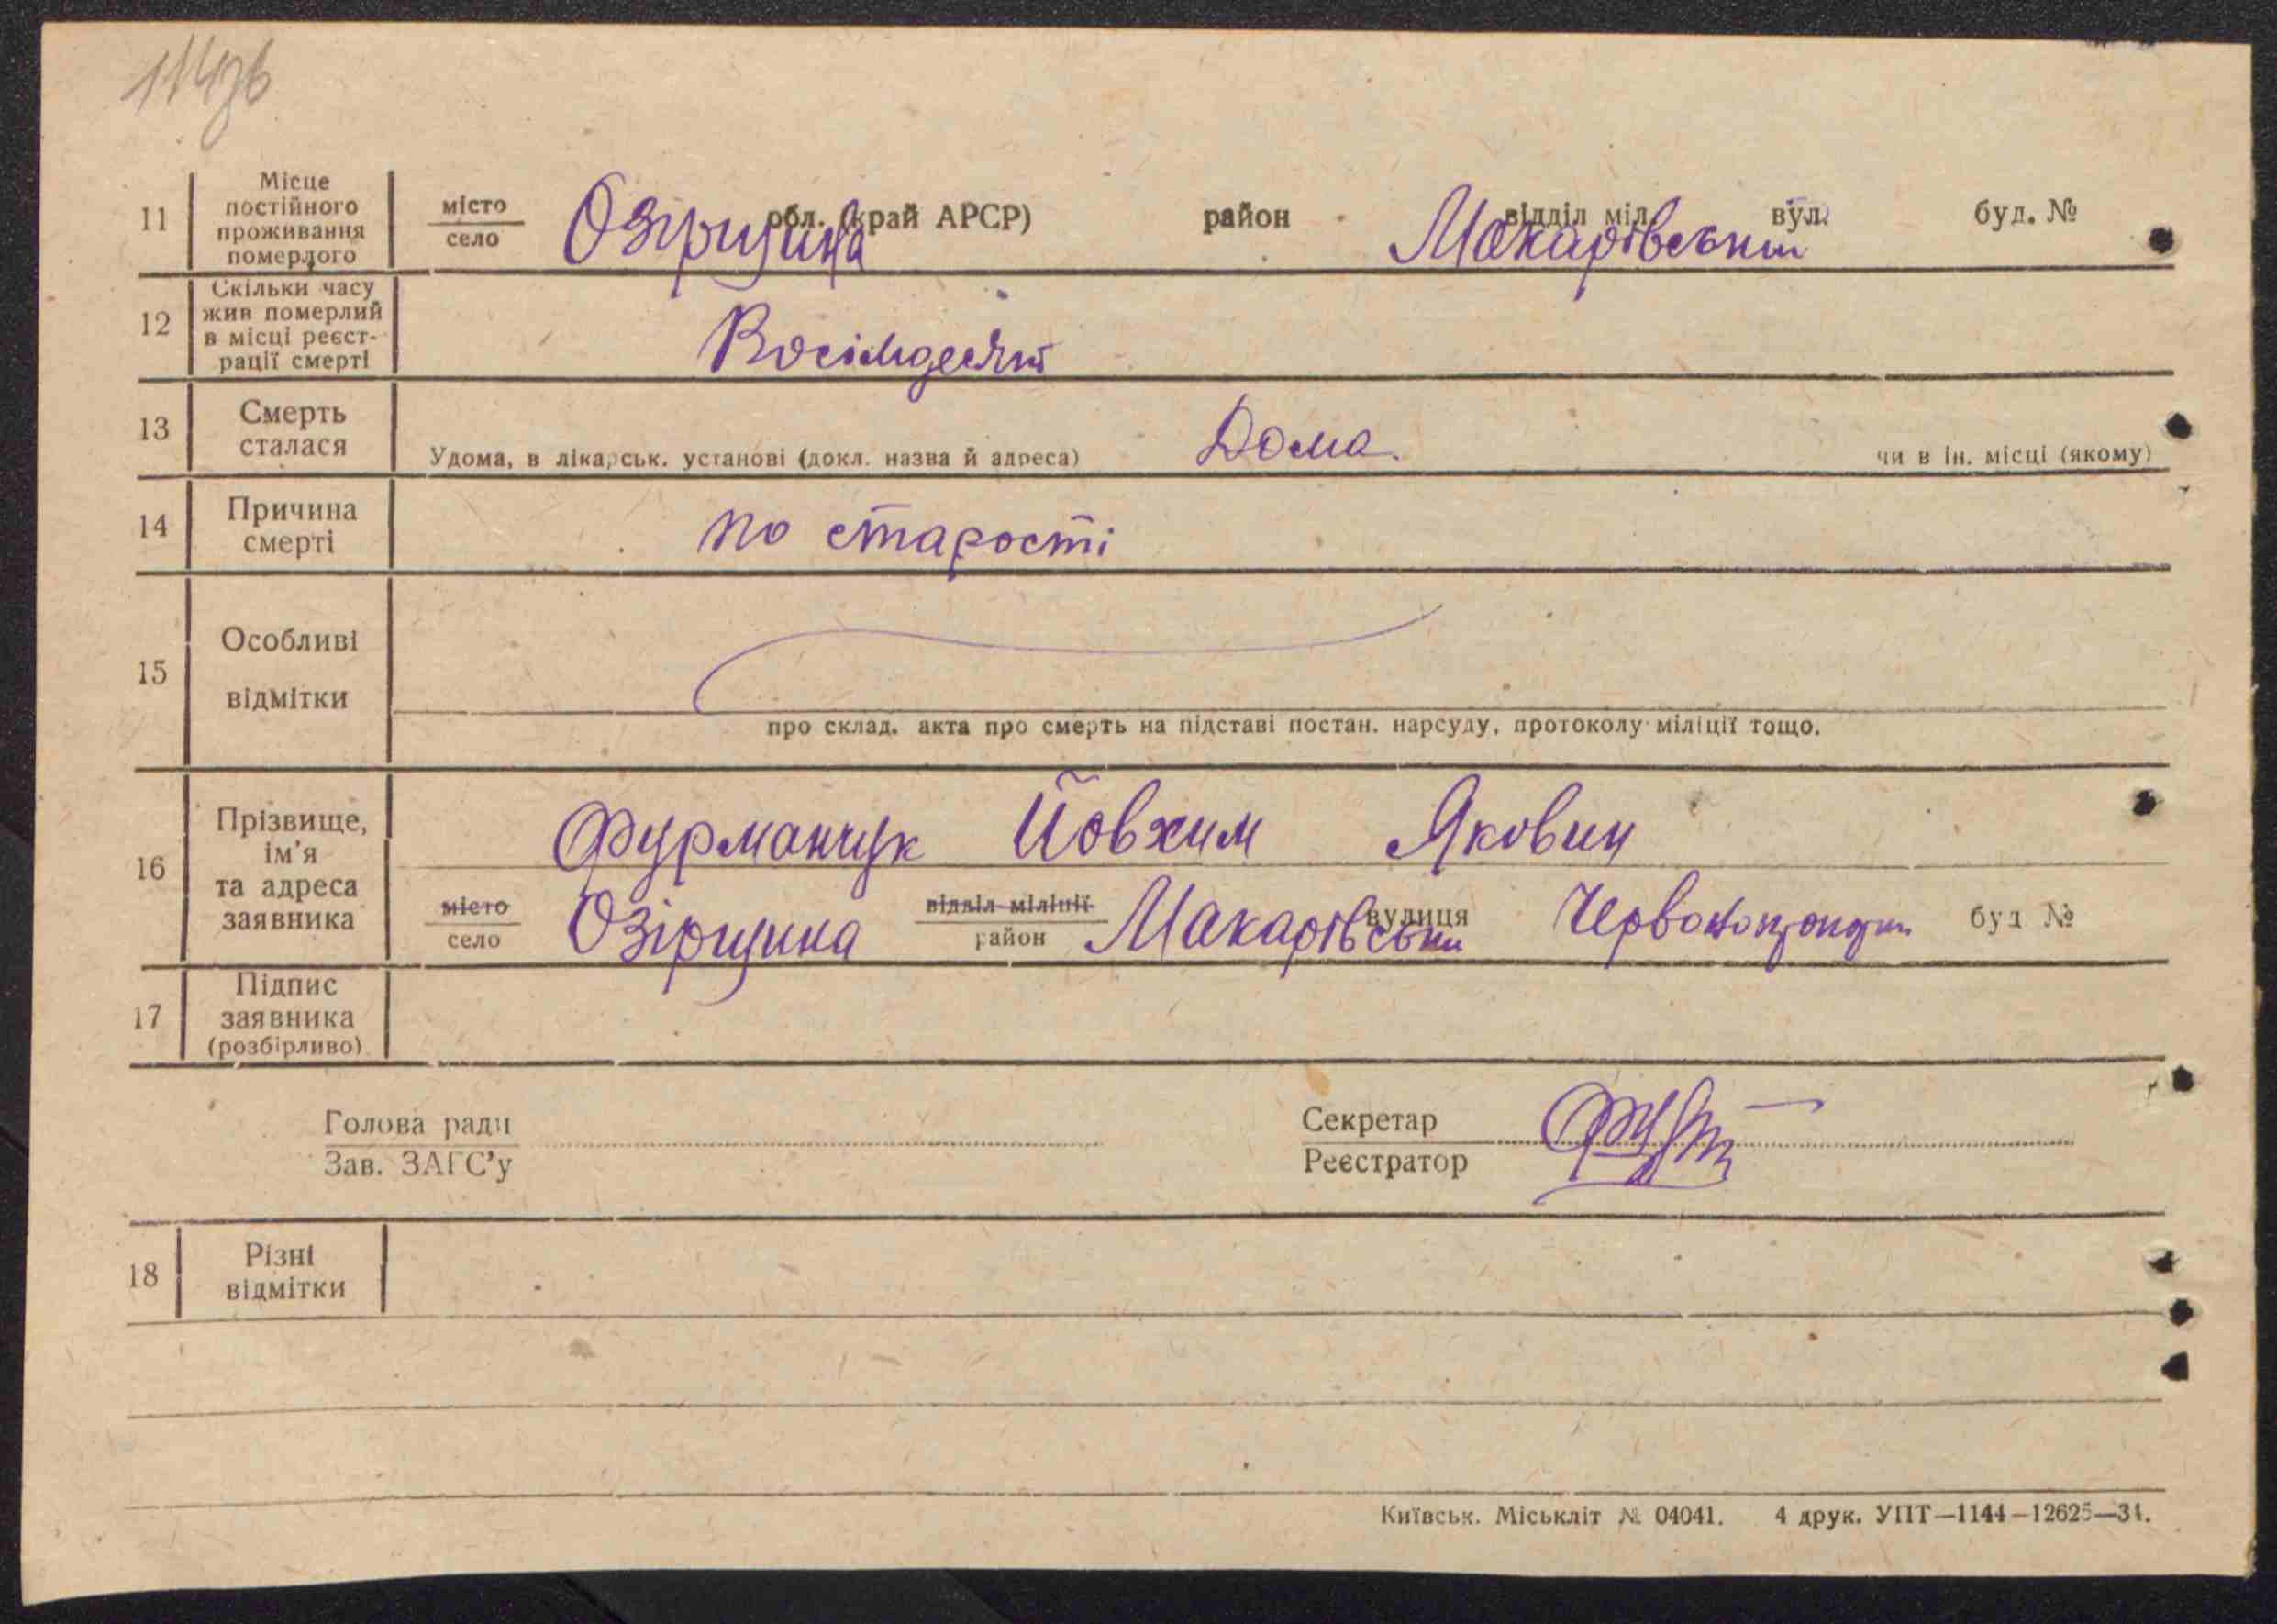 11 Місце постійного проживання померлого місто село Озірщина обл. (край АРСР) район Макарівський відділ міл. вул. буд. №
12 Скільки часу жив померлий в місці реєстрації смерті Восімдесят
13 Смерть сталася Удома, в лікарськ. установі (докл. назва й адреса) Дома чи в ін. місці (якому)
14 Причина смерті по старості
15 Особливі відмітки
про склад. акта про смерть на підставі постан. нарсуду, протоколу міліції тощо.
16 Прізвище, ім'я та адреса заявника Фурманчук Йовхим Якович
місто село Озірщина відділ міліції район Макарівськи вулиця буд №
17 Підпис заявника (розбірливо)
Голова ради Секретар
Зав. ЗАГС'у Реєстратор
18 Різні відмітки
Київськ. Міськліт № 04041. 4 друк. УПТ—1144—12625—34.